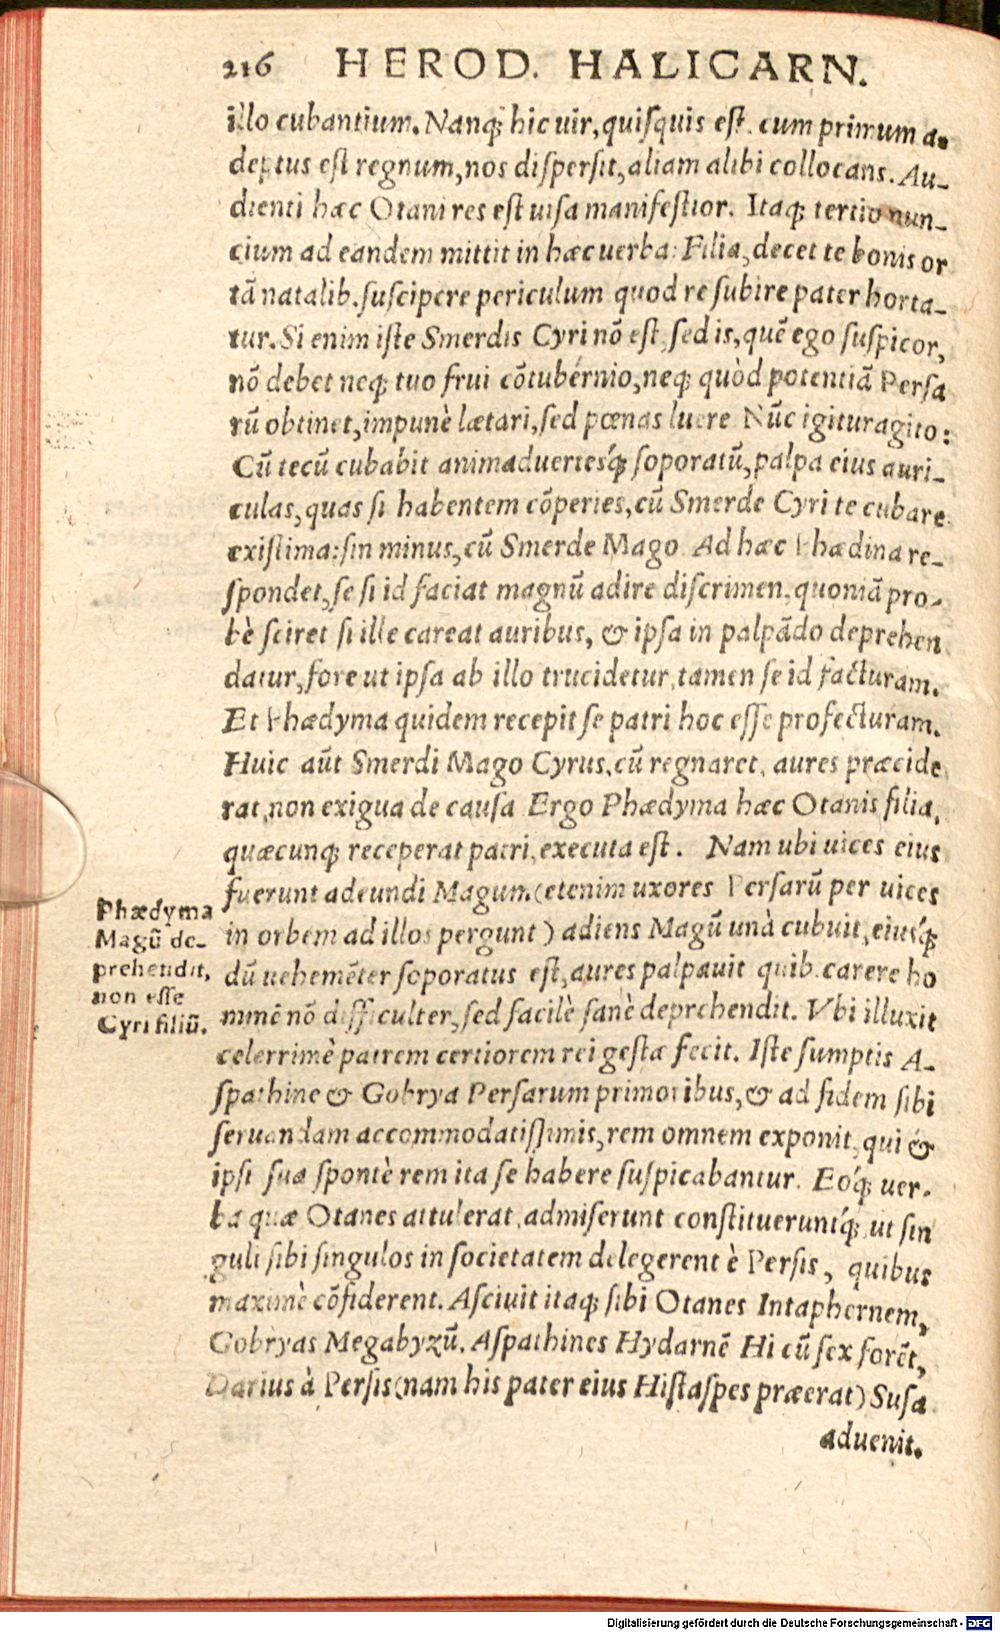 216 HEROD. HALICARN.
illo cubantium. Nanq; hic uir, quiſquis eſt. cum primum a-
deptus eſt regnum, nos diſperſit, aliam alibi collocans. Au-
dienti hæc Otani res eſt uiſa manifeſtior. Itaq; tertio nun-
cium ad eandem mittit in hæc uerba: Filia, decet te bonis or
tā natalib. ſuſcipere periculum quod re ſubire pater horta-
tur. Si enim iſte Smerdis Cyri nō eſt, ſed is, quē ego ſuſpicor,
nō debet neq; tuo frui cōtubernio, neq; quòd potentiā Perſa
rū obtinet, impunè lætari, ſed pœnas luere Nūc igitur agito:
Cū tecū cubabit animaduertesq́; ſoporatū, palpa eius auri-
culas, quas ſi habentem cōperies, cū Smerde Cyri te cubare
exiſtima: ſin minus, cū Smerde Mago. Ad hæc Phædina re-
ſpondet, ſe ſi id faciat magnū adire diſcrimen, quoniā pro-
bè ſciret ſi ille careat auribus, & ipſa in palpādo deprehen
datur, fore ut ipſa ab illo trucidetur, tamen ſe id facturam.
Et Phædyma quidem recepit ſe patri hoc eſſe profecturam.
Huic aūt Smerdi Mago Cyrus, cū regnaret, aures præcide
rat, non exigua de cauſa Ergo Phædyma hæc Otanis filia,
quæcunq; receperat patri, executa eſt. Nam ubi uices eius
fuerunt adeundi Magum. (etenim uxores Perſarū per uices
in orbem ad illos pergunt) adiens Magū unà cubuit, eiusq́;
dū uehemēter ſoporatus eſt, aures palpauit quib. carere ho
minē nō difficulter, ſed facilè ſanè deprehendit. Vbi illuxit
celerrimè patrem certiorem rei geſtæ fecit. Iſte ſumptis A-
ſpathine & Gobrya Perſarum primoribus, & ad fidem ſibi
ſeruandam accommodatiſſimis, rem omnem exponit, qui &
ipſi ſua ſpontè rem ita ſe habere ſuſpicabantur. Eóq; uer-
ba quæ Otanes attulerat, admiſerunt conſtitueruntq́; ut ſin
guli ſibi ſingulos in ſocietatem delegerent è Perſis, quibus
maximè cōfiderent. Aſciuit itaq; ſibi Otanes Intaphernem,
Gobryas Megabyzū. Aſpathines Hydarnē Hi cū ſex forēt,
Darius à Perſis (nam his pater eius Hiſtaſpes præerat) Suſa
aduenit.
Phædyma
Magū de-
prehendit,
non eſſe
Cyri filiū.
Digitalisierung gefördert durch die Deutsche Forschungsgemeinschaft - DFG